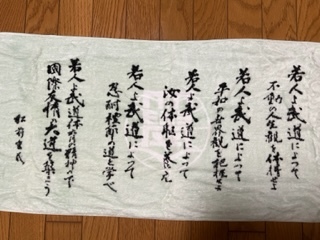 若人よ武道によって
不動の人生観を体得せよ
若人よ武道によって
平和の世界観を把握せよ
若人よ武道によって
汝の体躯を養え
若人よ武道によって
忍耐礼節の道を学べ
若人よ武道体育の精神の下
国際友情の大道を築こう
松前重義